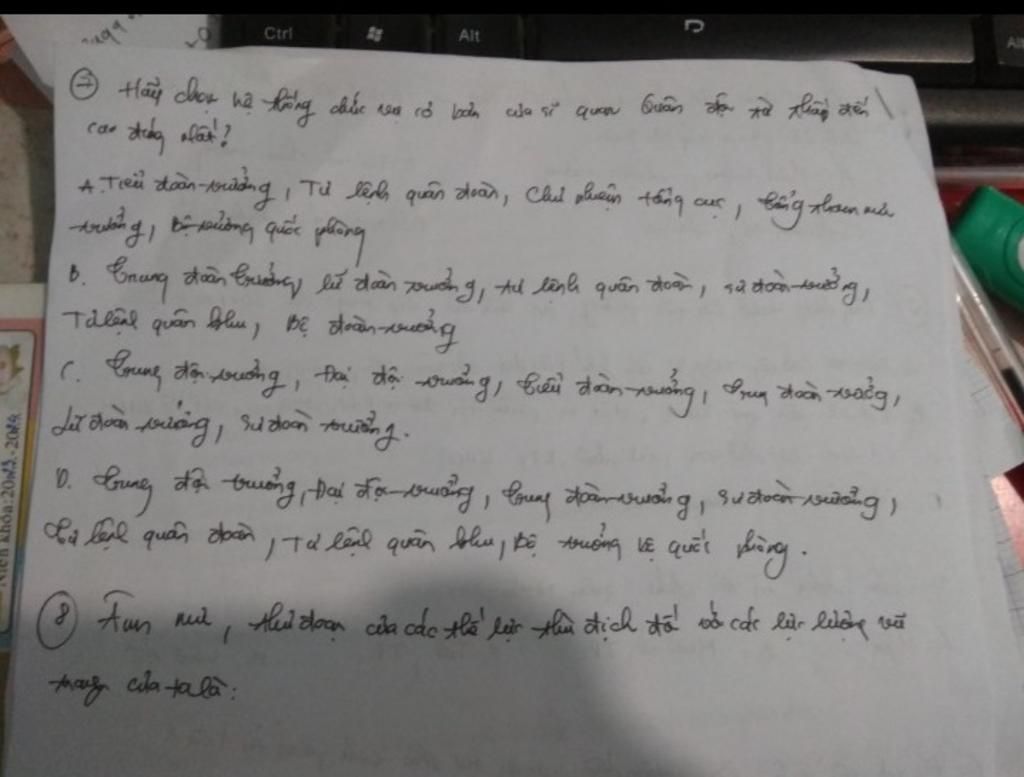 Ctrl Alt Alt
⑦ Hãy chọn hệ thống chức vụ cơ bản của sĩ quan Quân đội từ thấp đến
cao đúng nhất?
A. Tiểu đoàn trưởng, Tư lệnh quân đoàn, Chủ nhiệm tổng cục, Tổng tham mưu
trưởng, Bộ trưởng quốc phòng
B. Trung đoàn trưởng, lữ đoàn trưởng, tư lệnh quân đoàn, sư đoàn trưởng,
Tư lệnh quân khu, Bộ đoàn trưởng
C. Trung đội trưởng, Đại đội trưởng, tiểu đoàn trưởng, trung đoàn trưởng,
Lữ đoàn trưởng, sư đoàn trưởng.
D. Trung đội trưởng, Đại đội trưởng, trung đoàn trưởng, sư đoàn trưởng,
Tư lệnh quân đoàn, Tư lệnh quân khu, Bộ trưởng bộ quốc phòng.
⑧ Âm mưu, thủ đoạn của các thế lực thù địch đối với các lực lượng vũ
trang của ta là: